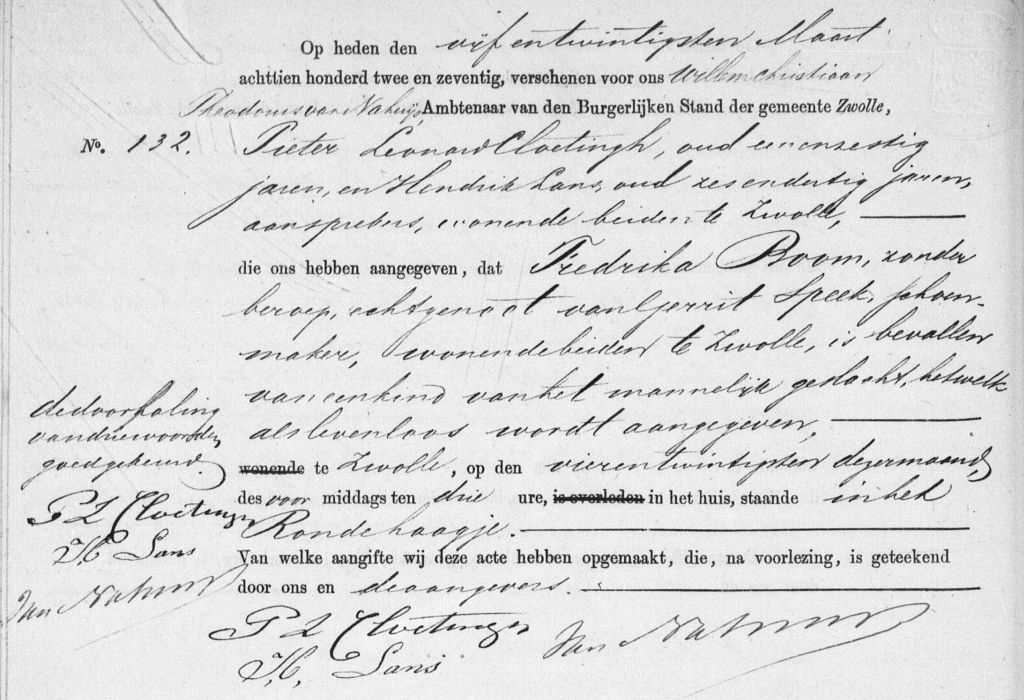 Op heden den vijf entwintigsten Maart
achttien honderd twee en zeventig, verschenen voor ons Willem Christiaan
Theodorus van Nahuijs, Ambtenaar van den Burgerlijken Stand der gemeente Zwolle,
No. 132. Pieter Leonard Cloetingh, oud eenenzestig
jaren, en Hendrik Lans, oud zesendertig jaren,
aansprekers, wonende beiden te Zwolle,
die ons hebben aangegeven, dat Fredrika Boom, zonder
beroep, echtgenoot van Gerrit Speek, schoen-
maker, wonende beiden te Zwolle, is bevallen
van een kind van het mannelijk geslacht, hetwelk
als levenloos wordt aangegeven,
wonende te Zwolle, op den vierentwintigsten dezer maand,
des voor middags ten drie ure, is overleden in het huis, staande in het
Ronde haagje.
Van welke aangifte wij deze acte hebben opgemaakt, die, na voorlezing, is geteekend
door ons en de aangevers.
P L Cloetingh
H, Lans
Van Nahuijs
de doorhaling
van drie woorden
goedgekeurd.
P L Cloetingh
H Lans
Van Nahuijs